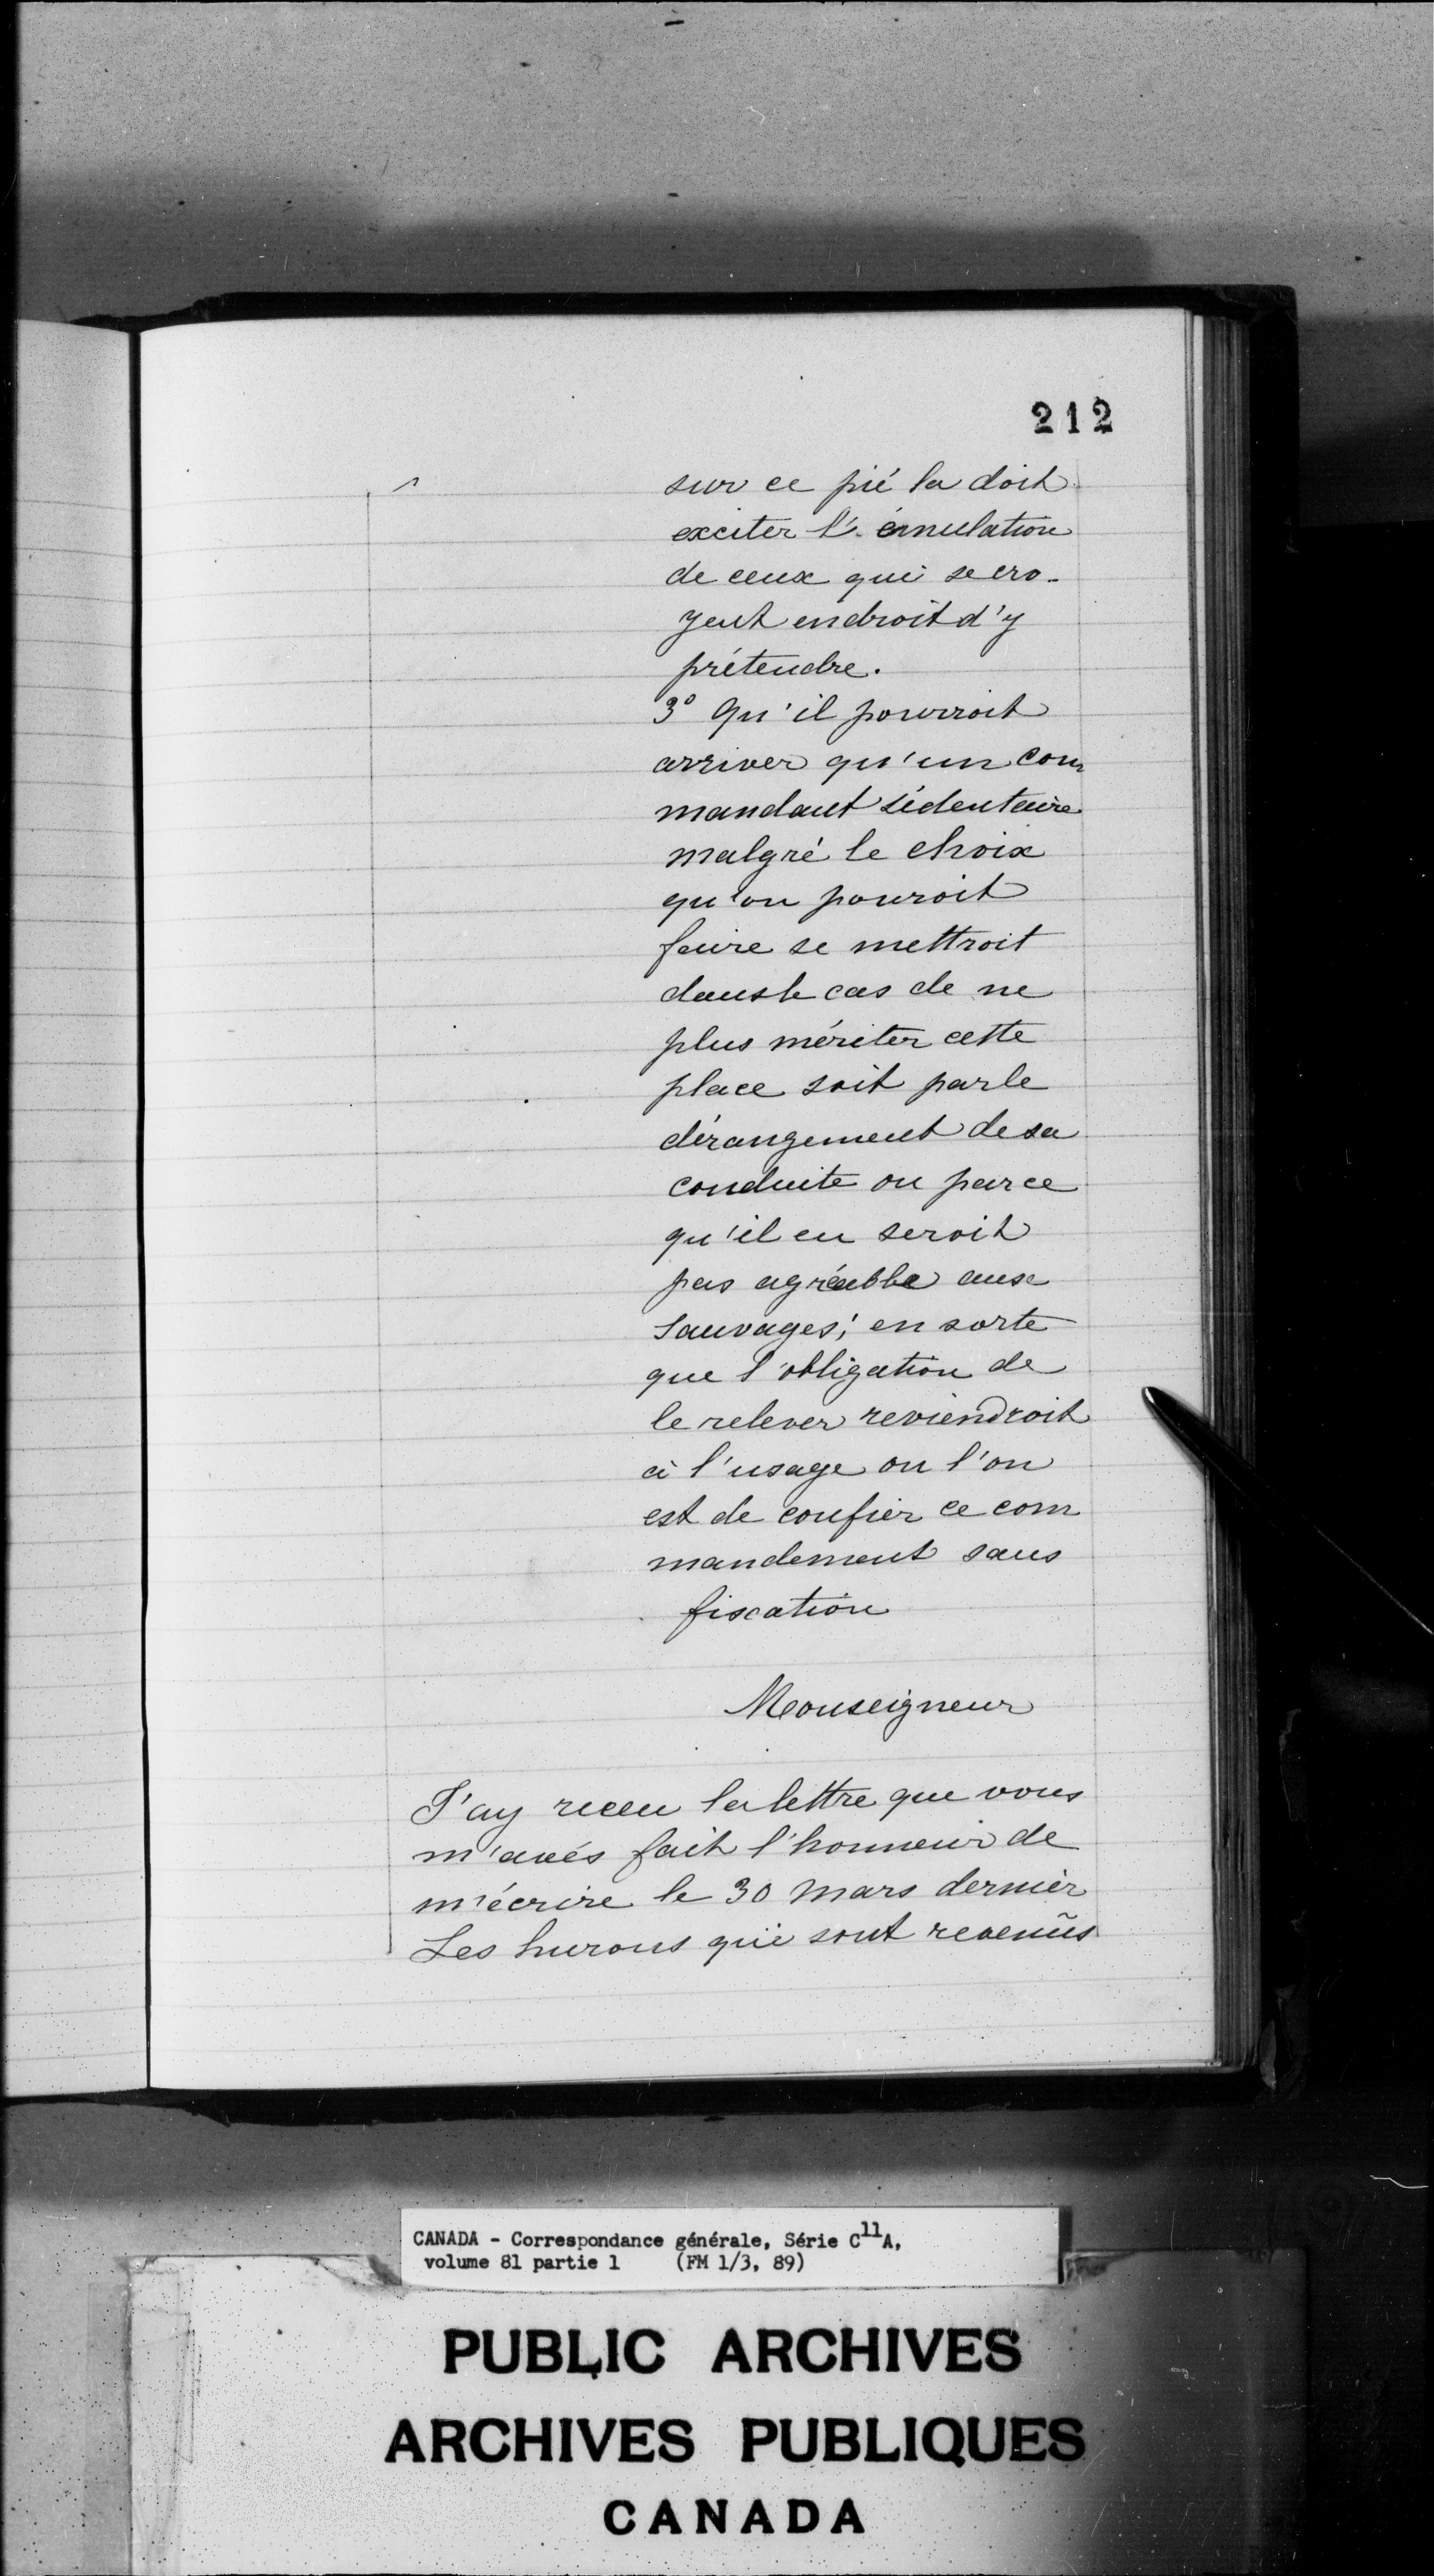 212
sur ce pié la doit
exciter l'émulation
de ceux qui se cro-
yent endroit d'y
prétendre.
3° Qu'il pourroit
arriver qu'un com
mandant sédentaire
malgré le choix
qu'on pouroit
faire se mettroit
dans le cas de ne
plus mériter cette
place soit parle
dérangement de sa
conduite ou parce
qu'il en seroit
pas agréable aux
Sauvages; en sorte
que l'obligation de
le relever reviendroit
à l'usage ou l'on
est de confier ce com
mandement sans
fixation
Monseigneur
J'ay receu la lettre que vous
m'avés fait l'honneur de
m'écrire le 30 mars dernier
Les hurons qui sont revenũs
CANADA - Correspondance générale, Série C11A,
volume 81 partie 1 (FM 1/3, 89)
PUBLIC ARCHIVES
ARCHIVES PUBLIQUES
CANADA